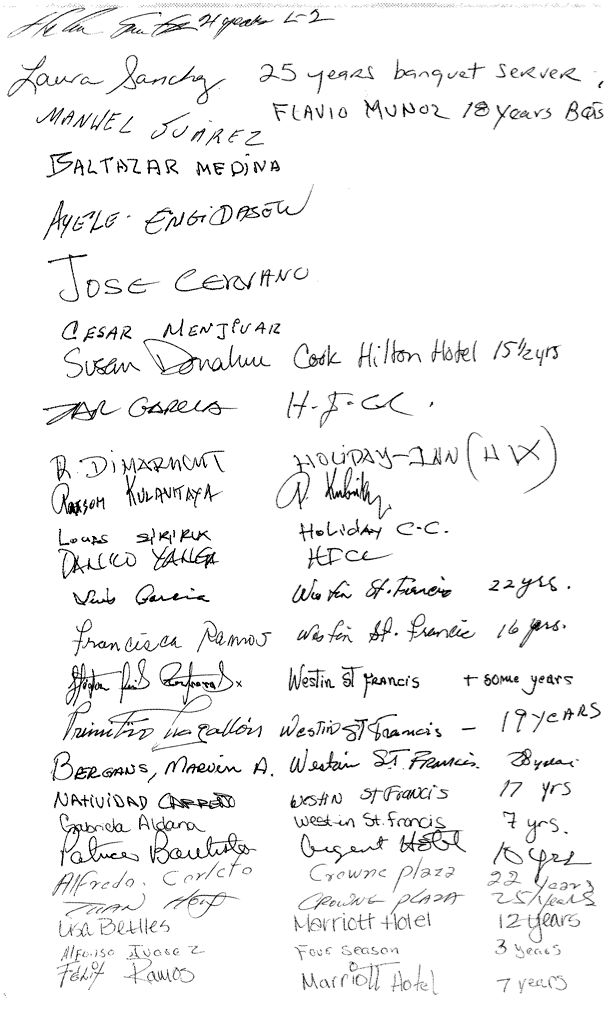 21 years L-2
Laura Sanchez 25 years banquet server,
MANUEL JUÁREZ FLAVIO MUNOZ 18 years
BALTAZAR MEDINA
AYELE ENGIDASEW
JOSE
CESAR MENJIVAR
Susan Donahue Cook Hilton Hotel 15 1/2 yrs
GARCIA
R. HOLIDAY-INN
KULAVITAYA
HOLIDAY C-C.
DANILO
Luis Garcia Westin St. Francis 22 yrs.
Francisca Ramos Westin St. Francis 16 yrs.
Westin St Francis + some years
Primitivo Westin ST Francis - 19 YEARS
BERGANS, MARVIN A. Westin ST. Francis 28 years
NATIVIDAD Westin St Francis 17 yrs
Gabriela Aldana Westin St. Francis 7 yrs.
Bautista Argent Hotel 10 yrs
Alfredo. Corleto Crowne plaza 22 years
JUAN CROWNE PLAZA 25 years
Lisa Marriott Hotel 12 years
Alfonso Juarez Four Season 3 years
Felix Ramos Marriott Hotel 7 years